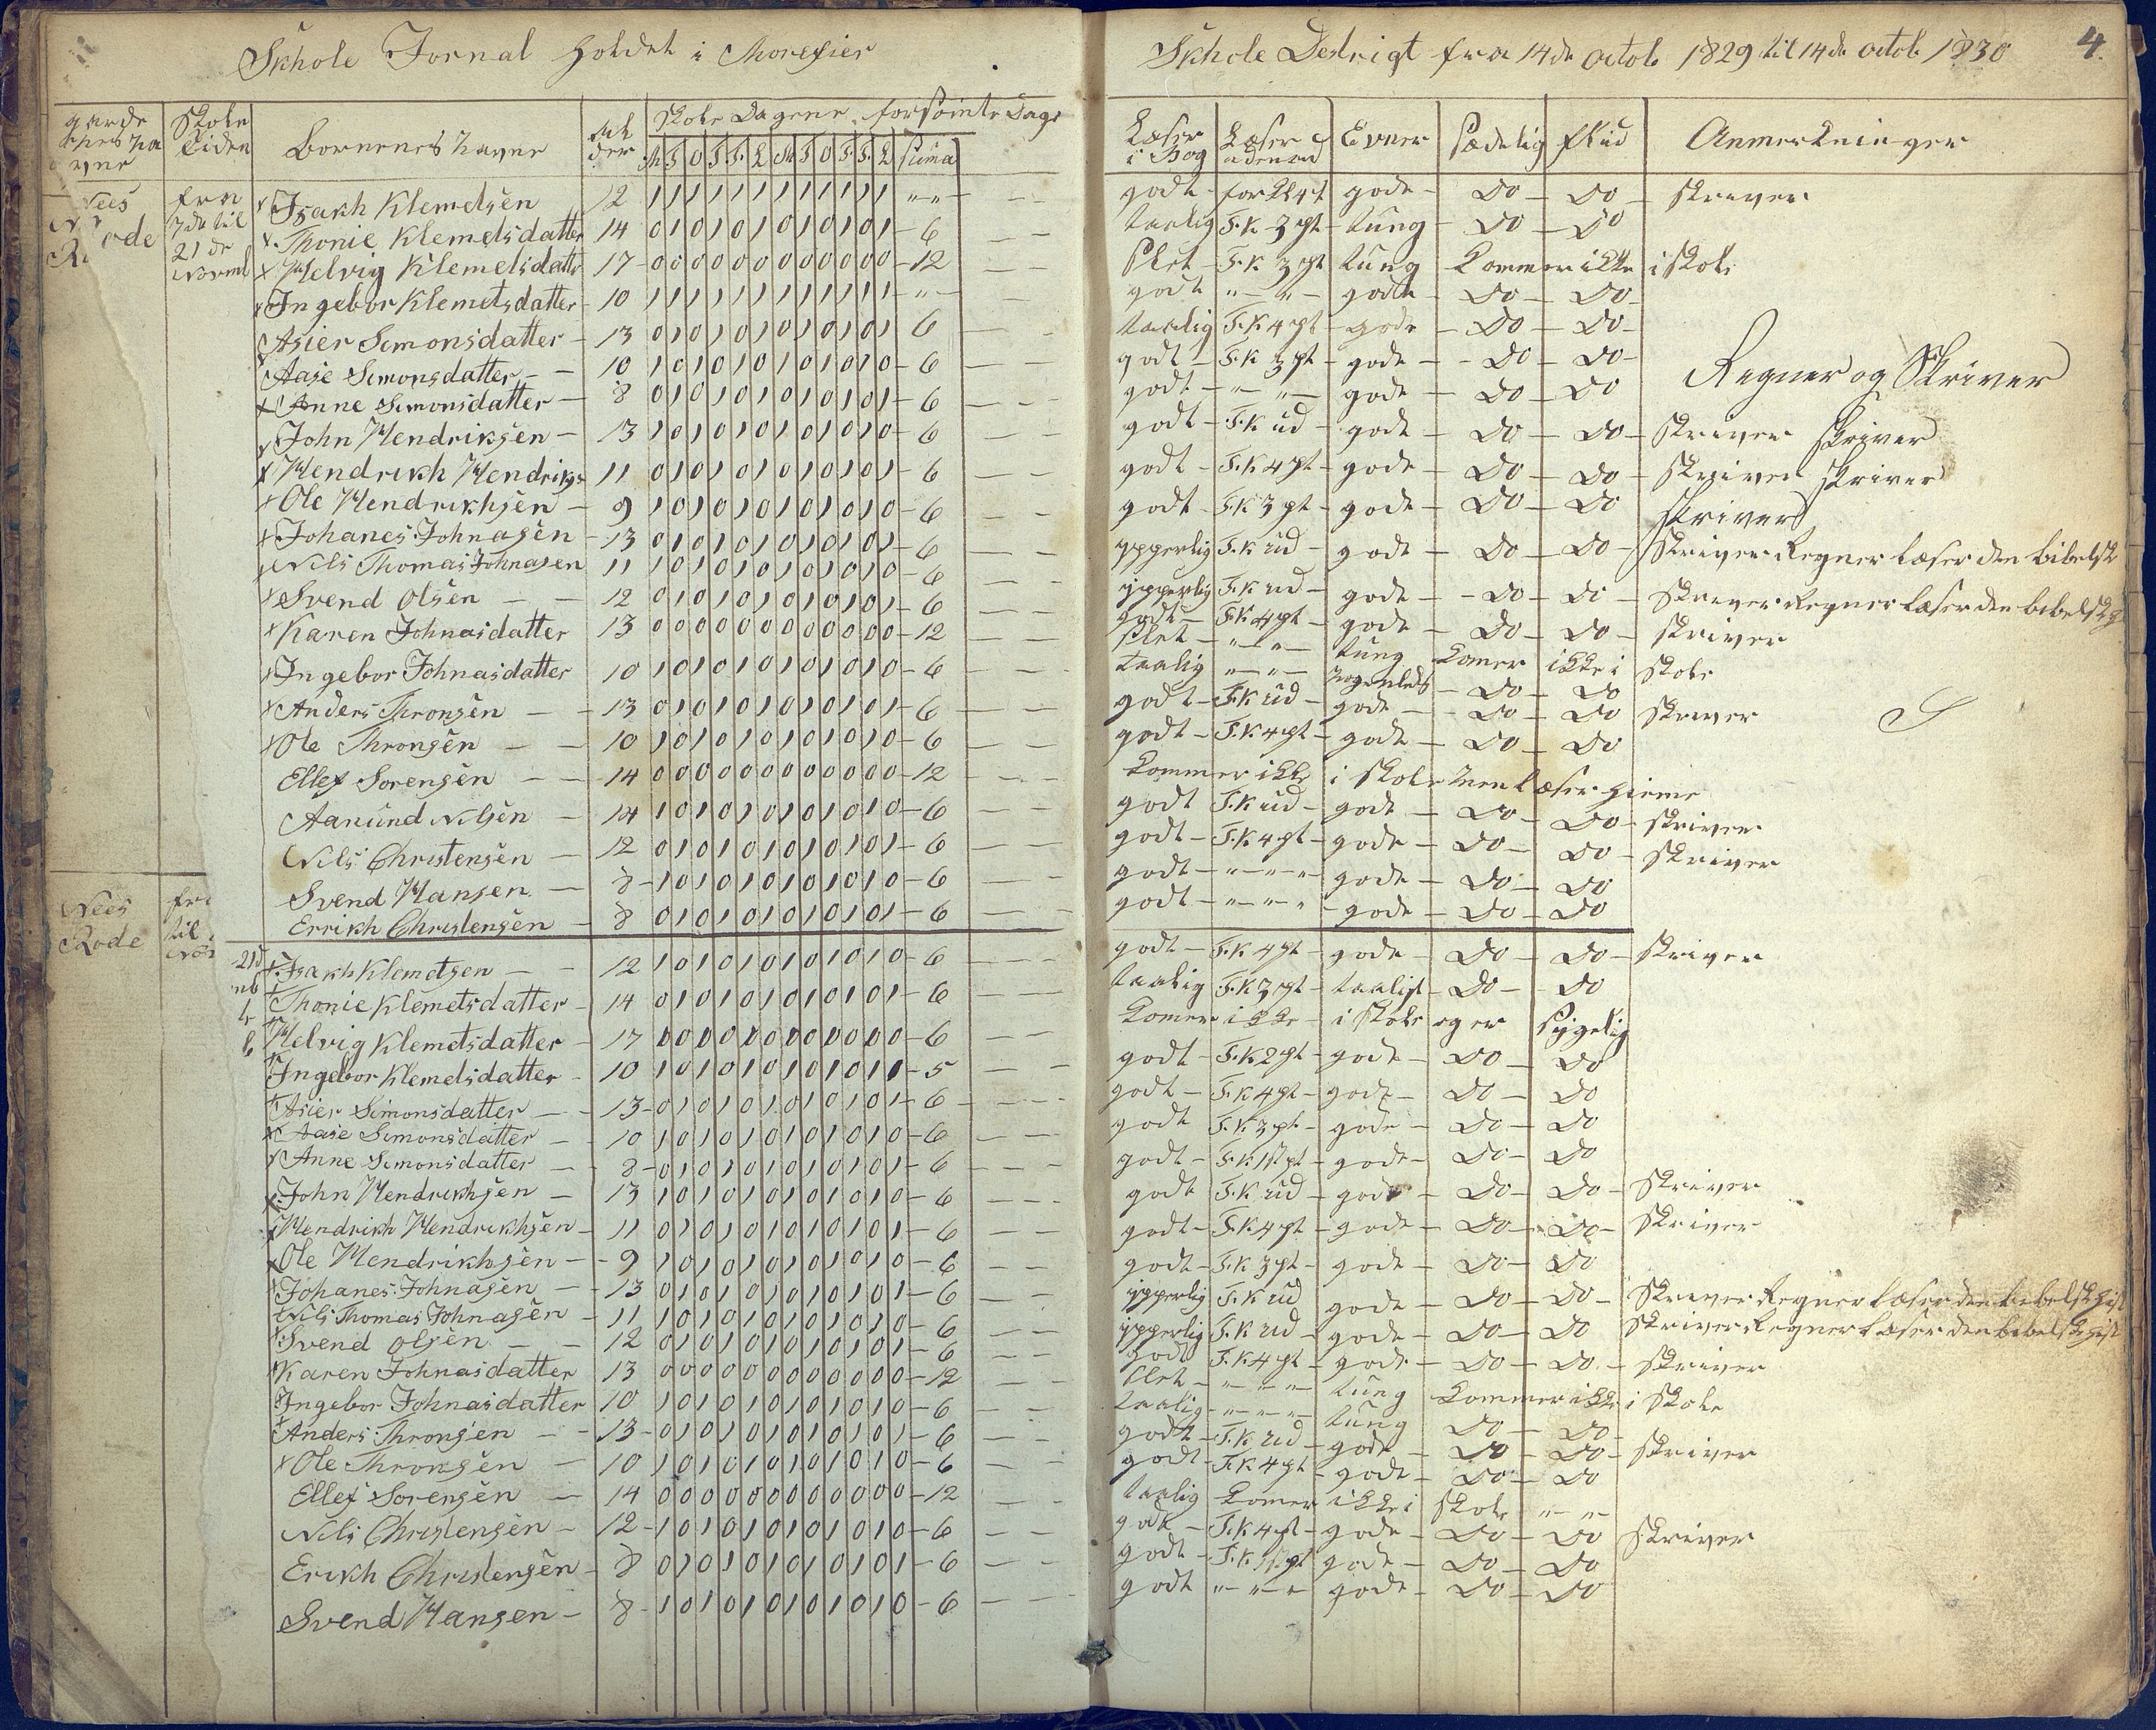 Skhole Jornal holdet i Morefier Skhole Destrigt fra 14de octob 1829 til 14de octob 1830 4.
Skole tiden Børnenes navne Al der Skole Dagene forsømte Dage
M T O T F L M T O T F L suma
Læser i Bog Læser udenad Evner Sædelig flid Anmerkninger
Nees Rode fra 7de til 21de Novemb
Isakh Klemetsen 12 1 1 1 1 1 1 1 1 1 1 1 1 " " gode Do Do skriver
Thonie Klemetsdatter 14 0 1 0 1 0 1 0 1 0 1 0 1 6 taalig F.K 3 pt tung Do Do
Helvig Klemetsdatter 17 0 0 0 0 0 0 0 0 0 0 0 0 12 Slet F.K 3 pt tung kommer ikke i skole
Ingebor Klemetsdatter 10 1 1 1 1 1 1 1 1 1 1 1 1 " godt " " gode Do Do
Asier Simonsdatter 13 0 1 0 1 0 1 0 1 0 1 0 1 6 taalig F.K 4 pt gode Do Do
Aase Simonsdatter 10 1 0 1 0 1 0 1 0 1 0 1 0 6 godt F.K 3 pt gode Do Do
Anne Simonsdatter 8 0 1 0 1 0 1 0 1 0 1 0 1 6 godt " " gode Do Do Regner og Skriver
John Hendriksen 13 1 0 1 0 1 0 1 0 1 0 1 0 6 godt F.K ud gode Do Do skriver skriver
Hendrikh Hendriks 11 0 1 0 1 0 1 0 1 0 1 0 1 6 godt F.K 4 pt gode Do Do skriver skriver
Ole Hendrikhsen 9 1 0 1 0 1 0 1 0 1 0 1 0 6 godt F.K 3 pt gode Do Do skriver
Johanes Johnasen 13 0 1 0 1 0 1 0 1 0 1 0 1 6 ypperlig F.K ud gode Do Do Skriver Regner læser den bibelsk
Nils Thomas Johnasen 11 1 0 1 0 1 0 1 0 1 0 1 0 6 ypperlig F.K ud gode Do Do Skriver Regner læser den bibelsk h
Svend Olsen 12 0 1 0 1 0 1 0 1 0 1 0 1 6 godt F.K 4 pt gode Do Do skriver
Karen Johnasdatter 13 0 0 0 0 0 0 0 0 0 0 0 0 12 slet " " tung komer ikke i skole
Ingebor Johnasdatter 10 1 0 1 0 1 0 1 0 1 0 1 0 6 taalig " " Do Do
Anders Thronsen 13 0 1 0 1 0 1 0 1 0 1 0 1 6 godt F.K ud gode Do Do skriver
Ole Thronsen 10 1 0 1 0 1 0 1 0 1 0 1 0 6 godt F.K 4 pt gode Do Do
Ellef Sorensen 14 0 0 0 0 0 0 0 0 0 0 0 0 12 kommer ikke i skole men læser hieme
Aanund Nilsen 14 1 0 1 0 1 0 1 0 1 0 1 0 6 godt F.K ud gode Do Do skriver
Nils Christensen 12 0 1 0 1 0 1 0 1 0 1 0 1 6 godt F.K 4 pt gode Do Do skriver
Svend Hansen 8 1 0 1 0 1 0 1 0 1 0 1 0 6 godt " " " gode Do Do
Errikh Christensen 8 0 1 0 1 0 1 0 1 0 1 0 1 6 godt " " " gode Do Do
Nees Rode
Isakh Klemetsen 12 1 0 1 0 1 0 1 0 1 0 1 0 6 godt F.K 4 pt gode Do Do skriver
Thonie Klemetsdatter 14 0 1 0 1 0 1 0 1 0 1 0 1 6 taalig F.K 3 pt taaligt Do Do
Helvig Klemetsdatter 17 0 0 0 0 0 0 0 0 0 0 0 0 6 komer ikke i skole og er sygelig
Ingebor Klemetsdatter 10 1 0 1 0 1 0 1 0 1 0 1 1 5 godt F.K 2 pt gode Do Do
Asier Simonsdatter 13 0 1 0 1 0 1 0 1 0 1 0 1 6 godt F.K 4 pt gode Do Do
Aase Simonsdatter 10 1 0 1 0 1 0 1 0 1 0 1 0 6 godt F.K 3 pt gode Do Do
Anne Simonsdatter 8 0 1 0 1 0 1 0 1 0 1 0 1 6 godt F.K 1st pt gode Do Do
John Hendrikhsen 13 1 0 1 0 1 0 1 0 1 0 1 0 6 godt F.K ud gode Do Do skriver
Hendrikh Hendrikhsen 11 0 1 0 1 0 1 0 1 0 1 0 1 6 godt F.K 4 pt gode Do Do skriver
Ole Hendrikhsen 9 1 0 1 0 1 0 1 0 1 0 1 0 6 godt F.K 3 pt gode Do Do
Johanes Johnasen 13 0 1 0 1 0 1 0 1 0 1 0 1 6 ypperlig F.K ud gode Do Do Skriver Regner læser den bibelsk hist
Nils Thomas Johnasen 11 1 0 1 0 1 0 1 0 1 0 1 0 6 ypperlig F.K ud gode Do Do skriver Regner læser den bibelsk hist
Svend Olsen 12 0 1 0 1 0 1 0 1 0 1 0 1 6 godt F.K 4 pt gode Do Do skriver
Karen Johnasdatter 13 0 0 0 0 0 0 0 0 0 0 0 0 12 slet " " " tung kommer ikke i skole
Ingebor Johnasdatter 10 1 0 1 0 1 0 1 0 1 0 1 0 6 taalig " " " tung Do Do
Anders Thronsen 13 0 1 0 1 0 1 0 1 0 1 0 1 6 godt F.K ud gode Do Do skriver
Ole Thronsen 10 1 0 1 0 1 0 1 0 1 0 1 0 6 godt F.K 4 pt gode Do Do
Ellef Sorensen 14 0 0 0 0 0 0 0 0 0 0 0 0 12 taalig komer ikke i skole " "
Nils Christensen 12 1 0 1 0 1 0 1 0 1 0 1 0 6 godt F.K 4 pt gode Do Do skriver
Erikh Christensen 8 0 1 0 1 0 1 0 1 0 1 0 1 6 godt F.K 1st pt gode Do Do
Svend Hansen 8 1 0 1 0 1 0 1 0 1 0 1 0 6 godt " " " gode Do Do